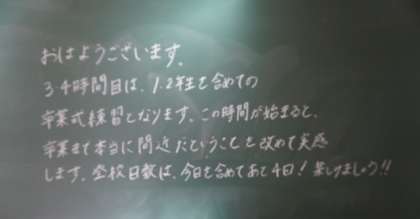 おはようございます。
3.4時間目は、1.2年生を含めての
卒業式練習となります。この時間が始まると、
卒業まで本当に間近だということを改めて実感
します。登校日数は、今日を含めてあと4日！楽しみましょう!!